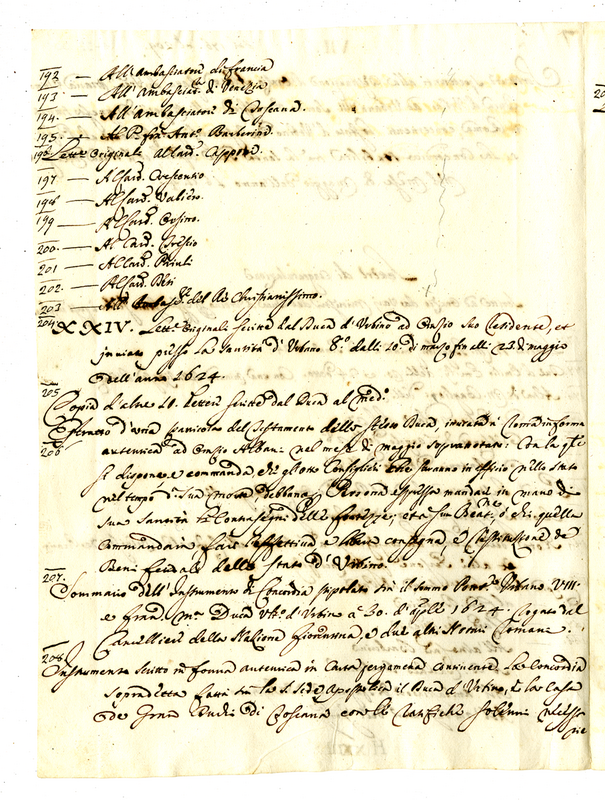 192 — All' Ambasciator di Francia
193 — All' Ambasciat.r di Venezia
194 — All' Ambasciatore di Toscana
195 — Al P. fra Ant.o Barberino
196 Lett.e originali al Card.
197 — Al Card. Crescentio
198 — Al Card. Valiero
199 — Al Card.
200 — Al Card.
201 — Al Card. Priuli
202 — Al Card.
203 — All' Ambas.r del Rè Christianissimo.
204 XXIV. Lett.e originali scritte dal Duca d' Urbino ad Orazio suo Residente, et
inviato presso la Santità d' Urbano 8.o dalli 20. di marzo fin alli 22 di maggio
dell' anno 1624.
205 Copia d' altre 20. lettere scritte dal Duca al med.o
206 Estratto d' una particola del Testamento dello stesso Duca, inviata in forma
autentica ad Orazio Albani nel mese di maggio sopranotato: con la q.le
si dispone, e commanda, che gl' otto Consiglieri che saranno in officio nello stato
nel tempo di sua morte debbano Persona espressa mandar in mano di
sua Santità li Contrasegni delle fortezze; et a sua Beat.ne ò chi quella
commandarà fare l' effettiva e libera consegna, e restituzione de
Beni feudali dello stato d' Urbino.
207. Sommario dell' Instrumento di Concordia stipolato trà il sommo Pont.e Urbano VIII.
e Fran.co M.a Duca Ult.o d' Urbino à 30. d' Aprile 1624. Rogato dal
Cancelliere della Nazione fiorentina, e due altri Notari Romani.
208 Instrumento scritto in forma autentica in Carta pergamena continente la Concordia
sopradetta fatta trà la S. Sede Apostolica il Duca d' Urbino, e la Casa
de Gran Duchi di Toscana con le Ratifiche solenni necessa
rie